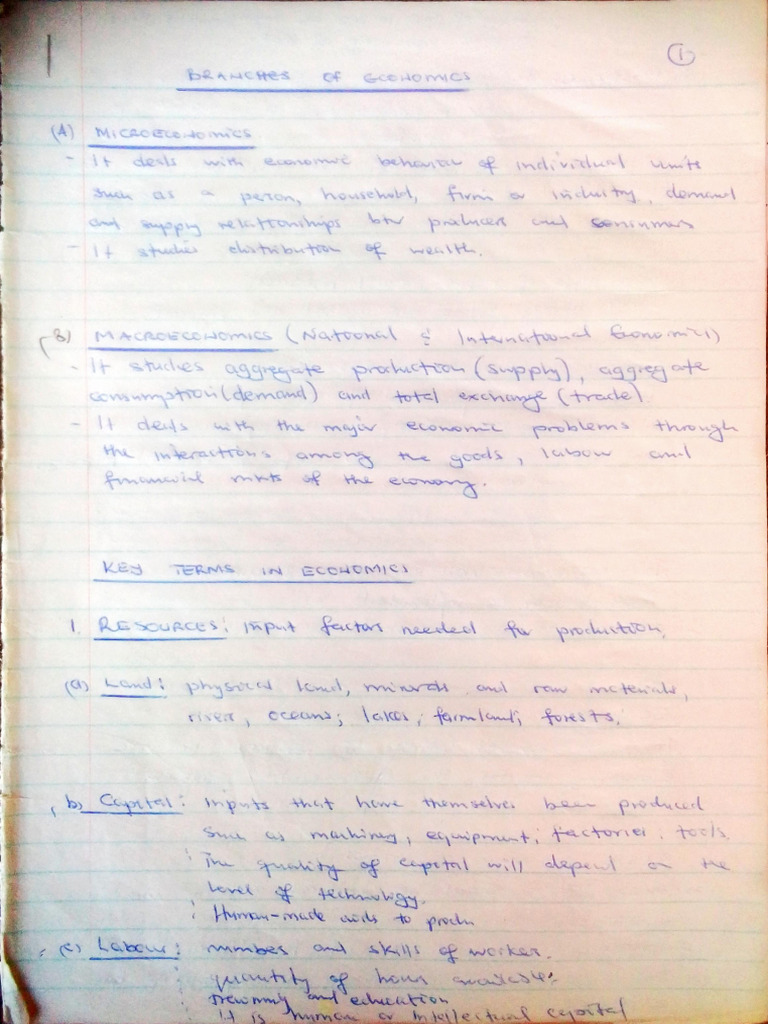 1
BRANCHES OF ECONOMICS
(A) MICROECONOMICS
- It deals with economic behavior of individual units
such as a person, household, firm or industry, demand
and supply relationships btw producers and consumers
- It studies distribution of wealth.
(B) MACROECONOMICS (National & International Economics)
- It studies aggregate production (supply), aggregate
consumption (demand) and total exchange (trade)
- It deals with the major economic problems through
the interactions among the goods, labour and
financial mkts of the economy.
KEY TERMS IN ECONOMICS
1. RESOURCES: input factors needed for production.
(a) Land: physical land, minerals and raw materials,
rivers, oceans; lakes; farmland; forests.
b) Capital: inputs that have themselves been produced
such as machinery, equipment; factories, tools.
: The quality of capital will depend on the
level of technology.
: Human-made aids to produ
(c) Labour: number and skills of worker.
: quantity of hours
: training and education
: It is human or intellectual capital